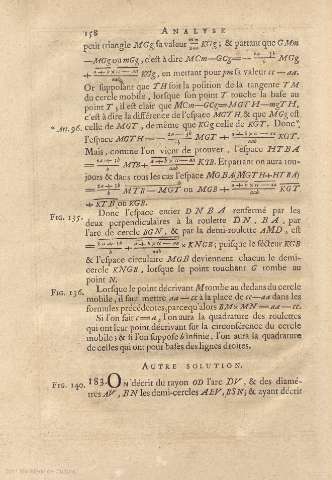 158 ANALYSE
petit triangle MGg sa valeur KGg; & partant que GMm
—MGg ou mGg, c'est à dire MCm—GCg= MGg
+ KGg, en mettant pour pm sa valeur cc—aa.
Or supposant que TH soit la position de la tangente TM
du cercle mobile, lorsque son point T touche la base au
point T; il est clair que MCm—GCg=MGTH—mgTH,
c'est à dire la différence de l'espace MGTH, & que MGg est
* Art. 96. celle de MGT, de même que KGg celle de KGT. Donc*
l'espace MGTH= MGT+ KGT.
Mais, comme l'on vient de prouver, l'espace HTBA
= MTB+ KTB. Et partant on aura toujours
& dans tous les cas l'espace MGBA (MGTH+HTBA)
= MTB—MGT ou MGB+ KGT
+KTB ou KGB.
FIG. 135. Donc l'espace entier DNBA renfermé par les
deux perpendiculaires à la roulette DN, BA, par
l'arc de cercle BGN, & par la demi-roulette AMD, est
= × KNGB; puisque le secteur KGB
& l'espace circulaire MGB deviennent chacun le demi-
cercle KNGB, lorsque le point touchant G tombe au
point N.
FIG. 136. Lorsque le point décrivant M tombe au dedans du cercle
mobile, il faut mettre aa—cc à la place de cc—aa dans les
formules précédentes, parce qu'alors BM×MN=aa—cc.
Si l'on fait c=a, l'on aura la quadrature des roulettes
qui ont leur point décrivant sur la circonférence du cercle
mobile; & si l'on suppose b infinie, l'on aura la quadrature
de celles qui ont pour bases des lignes droites.
AUTRE SOLUTION.
FIG. 140. 183. ON décrit du rayon OD l'arc DV, & des diamé-
tres AV, BN les demi-cercles AEV, BSN; & ayant décrit